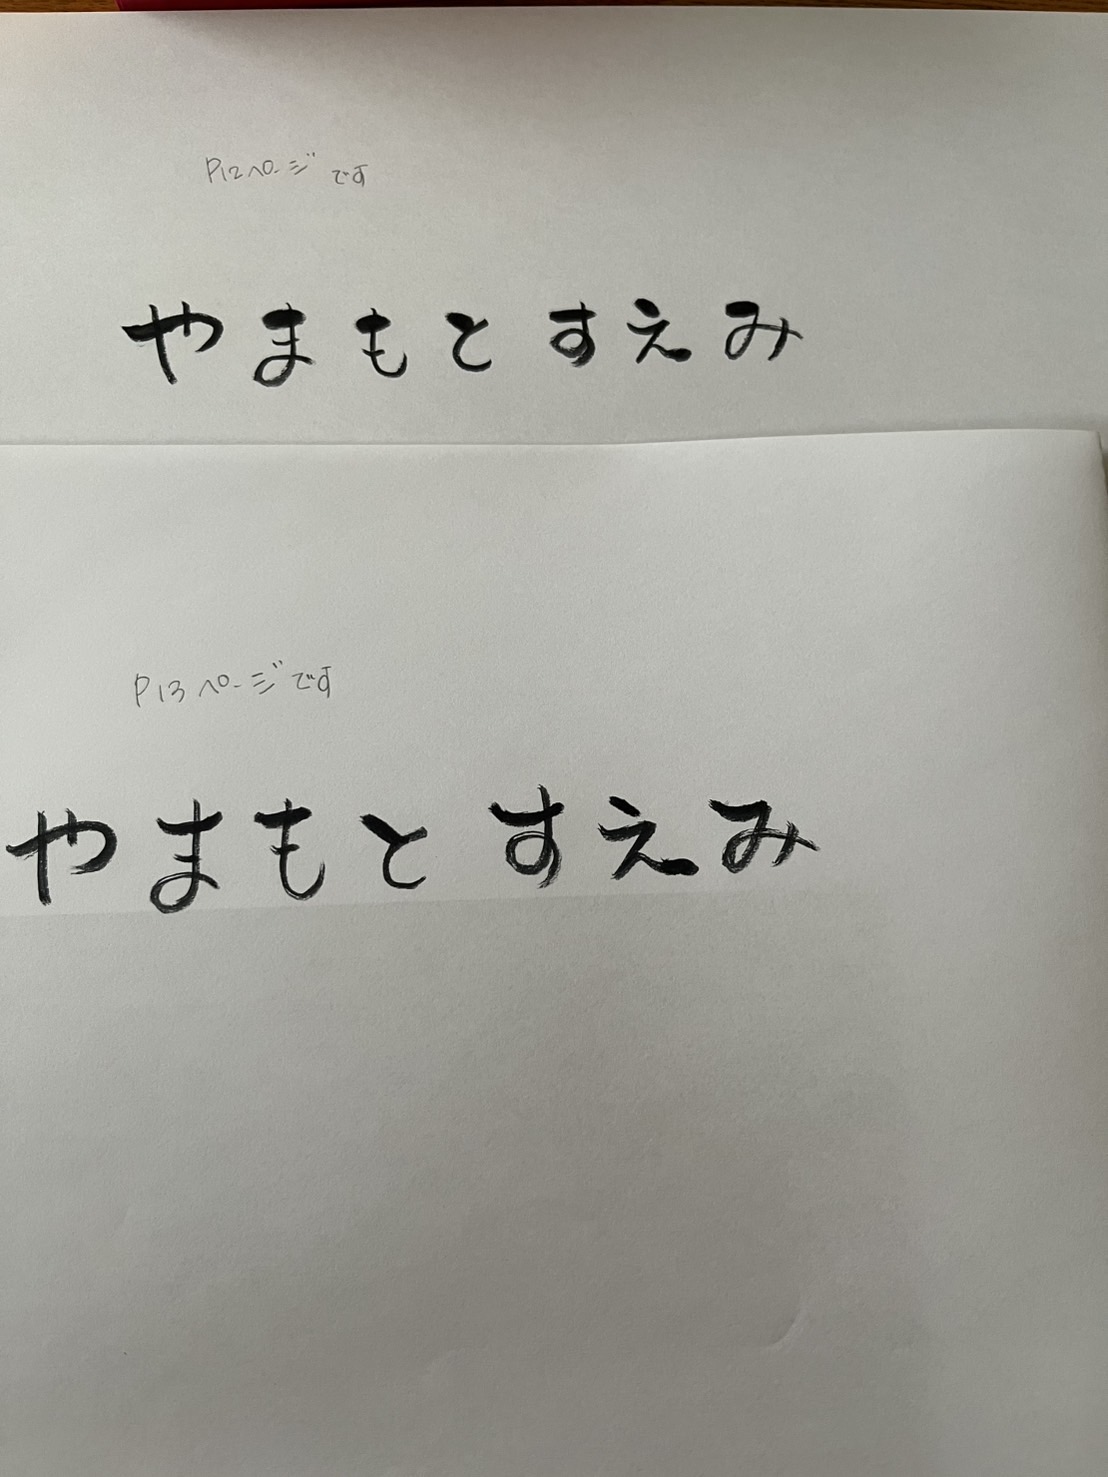 P12ページです
やまもと すえみ
P13ページです
やまもと すえみ